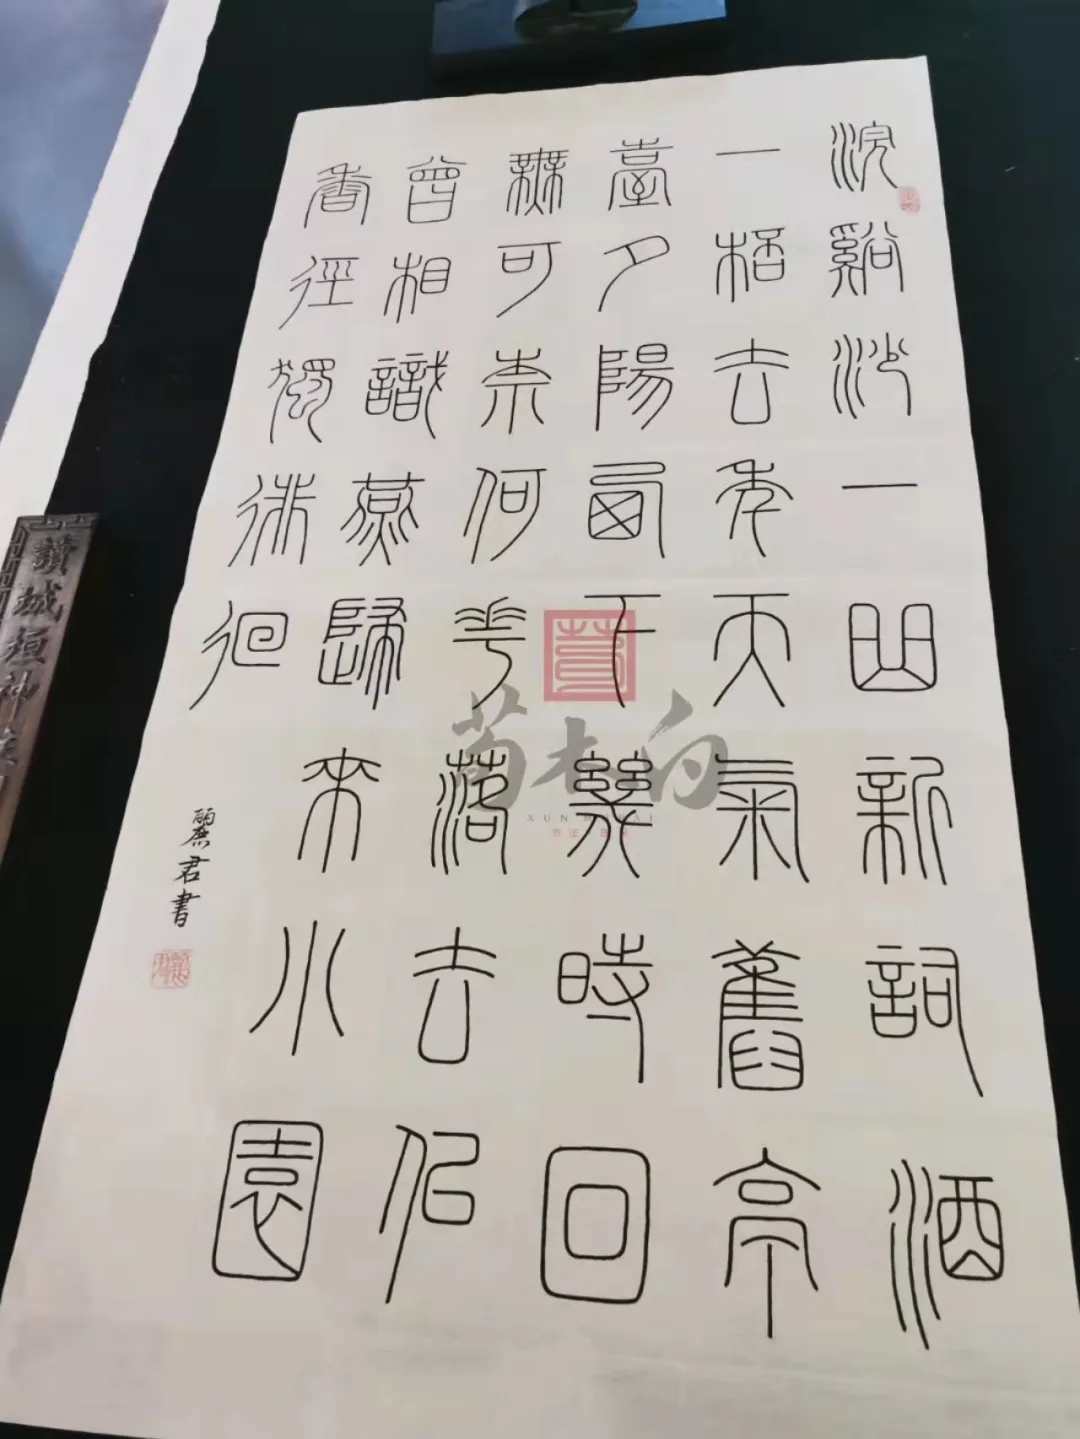 浣谿沙一曲新詞酒
一桮去年天氣舊亭
臺夕陽西下幾時回
無可柰何花落去佀
曾相識燕歸來小園
香徑獨徘徊
麗君書
荀木白